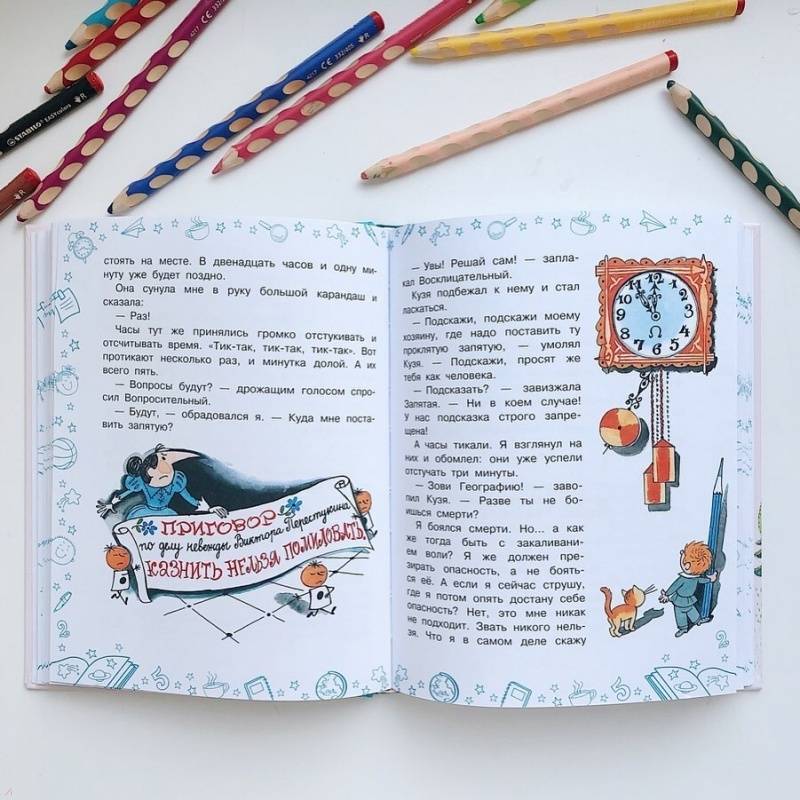 4217 CE 332/405
4217 CE 332
STABILO EASYcolors
R
R
стоять на месте. В двенадцать часов и одну ми-
нуту уже будет поздно.
Она сунула мне в руку большой карандаш и
сказала:
— Раз!
Часы тут же принялись громко отстукивать и
отсчитывать время. «Тик-так, тик-так, тик-так». Вот
протикают несколько раз, и минутка долой. А их
всего пять.
— Вопросы будут? — дрожащим голосом спро-
сил Вопросительный.
— Будут, — обрадовался я. — Куда мне поста-
вить запятую?
ПРИГОВОР
по делу невежды Виктора Перестукина
КАЗНИТЬ НЕЛЬЗЯ ПОМИЛОВАТЬ
— Увы! Решай сам! — запла-
кал Восклицательный.
Кузя подбежал к нему и стал
ласкаться.
— Подскажи, подскажи моему
хозяину, где надо поставить ту
проклятую запятую, — умолял
Кузя. — Подскажи, просят же
тебя как человека.
— Подсказать? — завизжала
Запятая. — Ни в коем случае!
У нас подсказка строго запре-
щена!
А часы тикали. Я взглянул на
них и обомлел: они уже успели
отстучать три минуты.
— Зови Географию! — заво-
пил Кузя. — Разве ты не бо-
ишься смерти?
Я боялся смерти. Но... а как
же тогда быть с закаливани-
ем воли? Я же должен пре-
зирать опасность, а не боять-
ся её. А если я сейчас струшу,
где я потом опять достану себе
опасность? Нет, это мне никак
не подходит. Звать никого нель-
зя. Что я в самом деле скажу
12 1 2 3 4 5 6 7 8 9 10 11